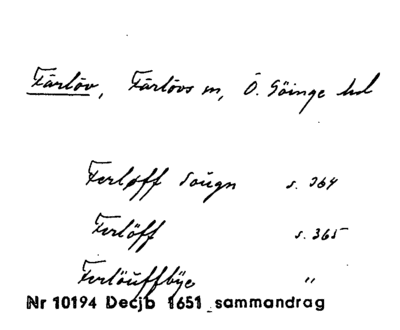 Färlöv, Färlövs sn, Ö. Göinge hd
Ferløff Sougn s. 364
Ferlöff s. 365
Ferlöuffbÿe "
Nr 10194 Decjb 1651 sammandrag